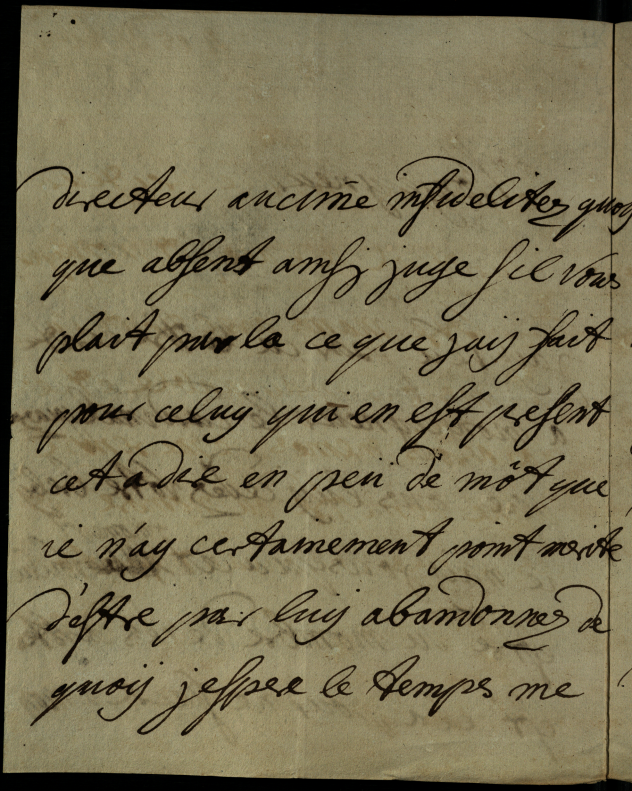 directeur aucune infidelitez quoy
que absent ainsj juge sil vous
plait par la ce que jaij fait
pour celuij qui en est present
cet a dire en peu de môt que
ie n'ay certainement point merite
d'estre par luij abandonnez de
quoij jespere le temps me